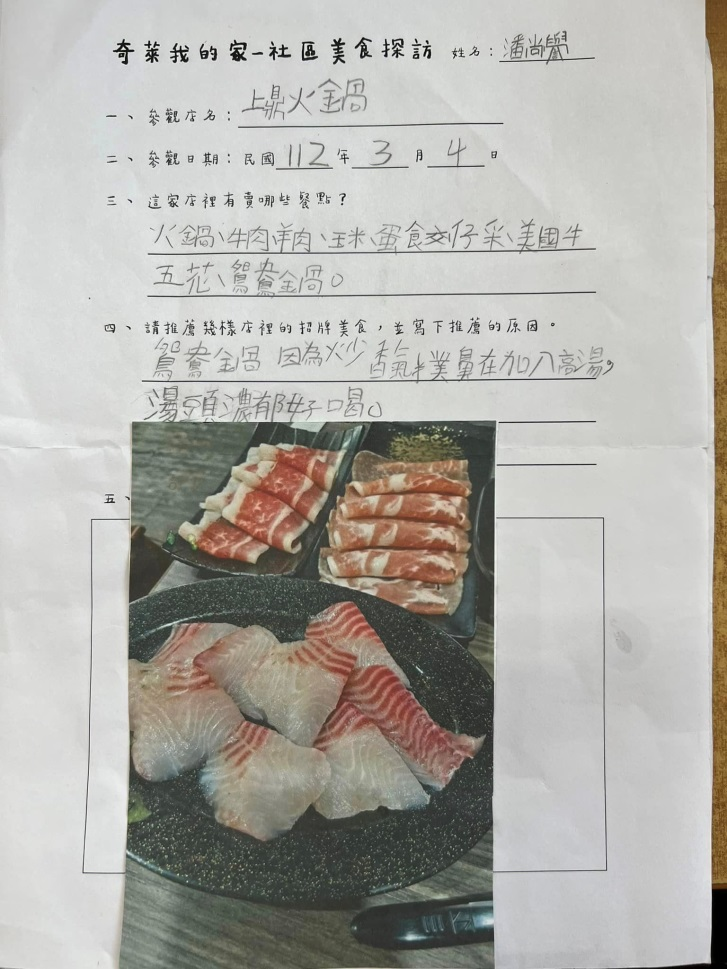 奇萊我的家-社區美食探訪 姓名：潘尚譽
一、參觀店名：上鼎火鍋
二、參觀日期：民國112年3月4日
三、這家店裡有賣哪些餐點？
火鍋、牛肉、羊肉、玉米、蛋餃、仔釆、美國牛
五花、鴛鴦鍋。
四、請推薦幾樣店裡的招牌美食，並寫下推薦的原因。
鴛鴦鍋 因為炒香氣撲鼻在加入高湯，
湯頭濃郁好喝。
五、